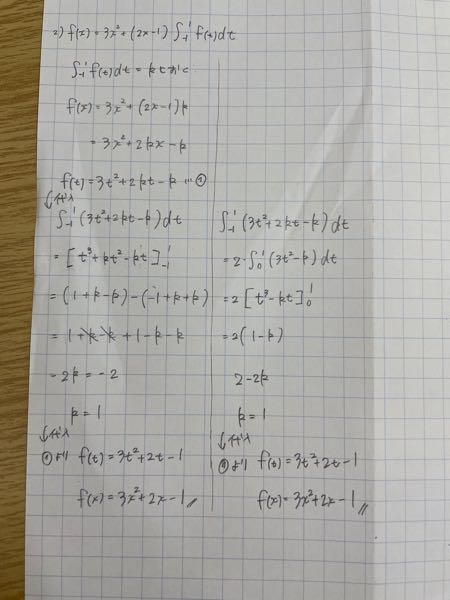 2) f(x) = 3x² + (2x-1) ∫₋₁¹ f(t)dt
∫₋₁¹ f(t)dt = k とおくと
f(x) = 3x² + (2x-1)k
= 3x² + 2kx - k
f(t) = 3t² + 2kt - k … ①
↓代入
∫₋₁¹ (3t² + 2kt - k)dt
= [t³ + kt² - kt]₋₁¹
= (1 + k - k) - (-1 + k + k)
= 1 + k - k + 1 - k - k
= 2k = -2
k = 1
↓代入
①より f(t) = 3t² + 2t - 1
f(x) = 3x² + 2x - 1 //
∫₋₁¹ (3t² + 2kt - k)dt
= 2・∫₀¹ (3t² - k)dt
= 2 [t³ - kt]₀¹
= 2(1 - k)
2 - 2k
k = 1
↓代入
①より f(t) = 3t² + 2t - 1
f(x) = 3x² + 2x - 1 //